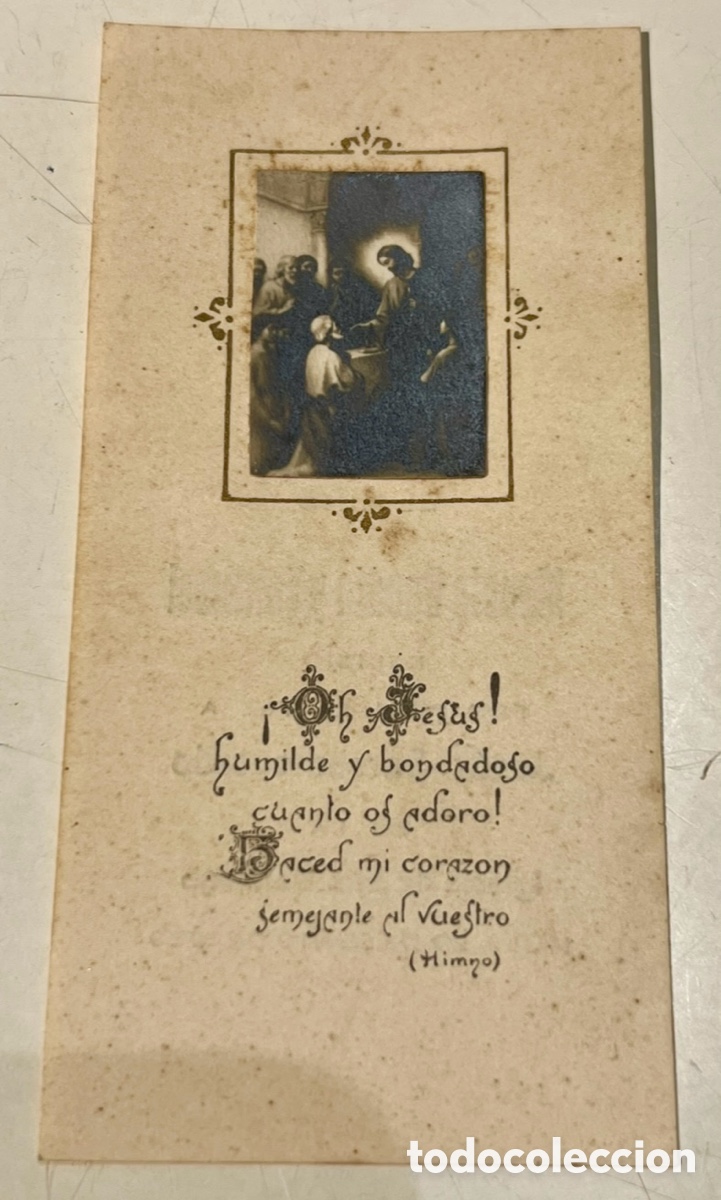 ¡Oh Jesus!
humilde y bondadoso
cuanto os adoro!
Haced mi corazon
semejante al vuestro
(Himno)
todocoleccion